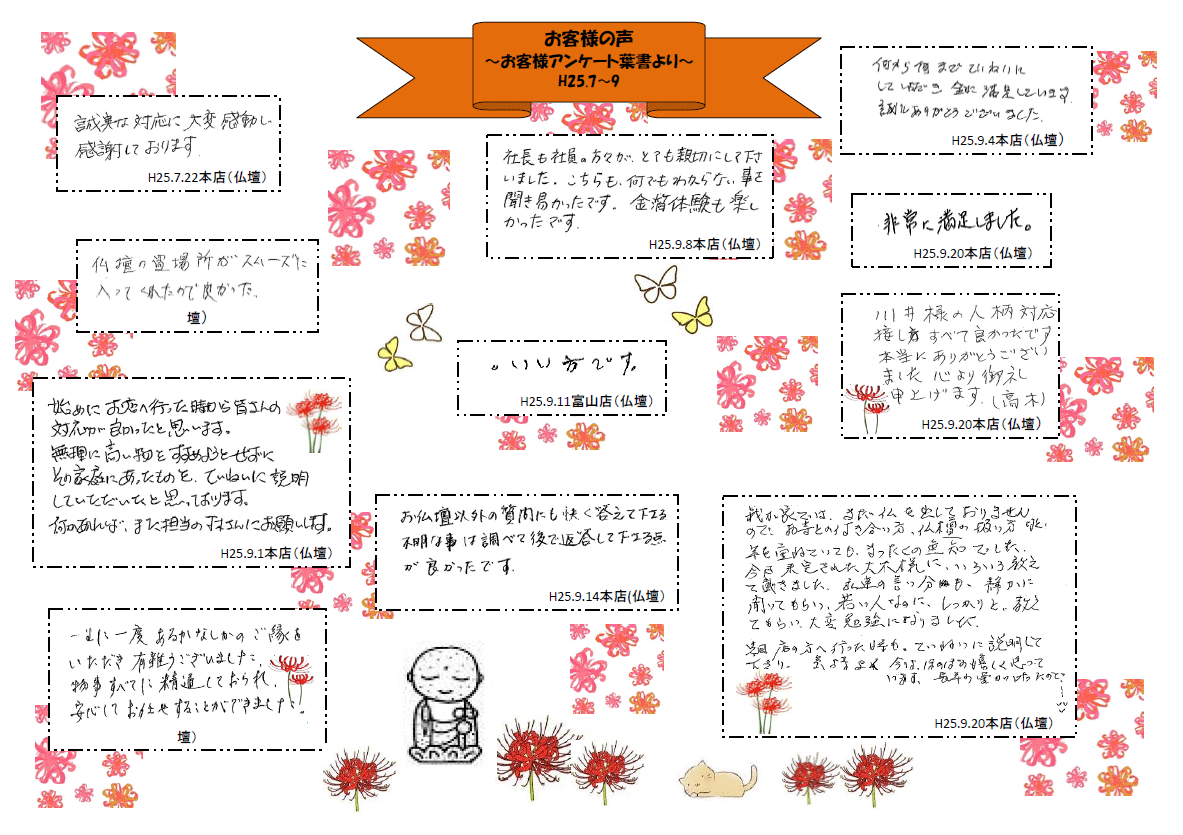 お客様の声
～お客様アンケート葉書より～
H25.7～9
誠実な対応に大変感動し
感謝しております。
H25.7.22本店（仏壇）
社長も社員の方々が、とても親切にして下さ
いました。こちらも、何でもわからない事を
聞き易かったです。金箔体験も楽し
かったです。
H25.9.8本店（仏壇）
何から何までていねいに
していただき 満足しています。
誠にありがとうございました。
H25.9.4本店（仏壇）
非常に満足しました。
H25.9.20本店（仏壇）
仏壇の置場所がスムーズに
入ってくれたので良かった。
壇）
川井様の人柄対応
接し方すべて良かったです
本当にありがとうござい
ました 心より御礼
申上げます。(高木)
H25.9.20本店（仏壇）
いい方です。
H25.9.11富山店（仏壇）
始めにお店へ行った時から皆さんの
対応が良かったと思います。
無理に高い物をすすめようとせずに
その家庭にあったものを、ていねいに説明
していただいたと思っております。
何かあれば、また担当の さんにお願いします。
H25.9.1本店（仏壇）
お仏壇以外の質問にも快く答えて下さる
不明な事は調べて後で返答して下さる点
が良かったです。
H25.9.14本店(仏壇）
我が家では、まだ仏を出しておりません
ので、お寺との付き合い方、仏壇の扱い方
年を重ねていても、まったくの無知でした。
今回 された大木様に、いろいろ教え
て戴きました。私達の言い分も、静かに
聞いてもらい、若い人なのに、しっかりと、教え
てもらい、大変勉強になりました。
店の方へ行った時も、ていねいに説明して
下さり、 今は、ほのぼの嬉しく思って
います。
H25.9.20本店（仏壇）
一生に一度あるかなしかのご縁を
いただき有難うございました。
物事すべてに精通しておられ、
安心してお任せすることができました。
壇）